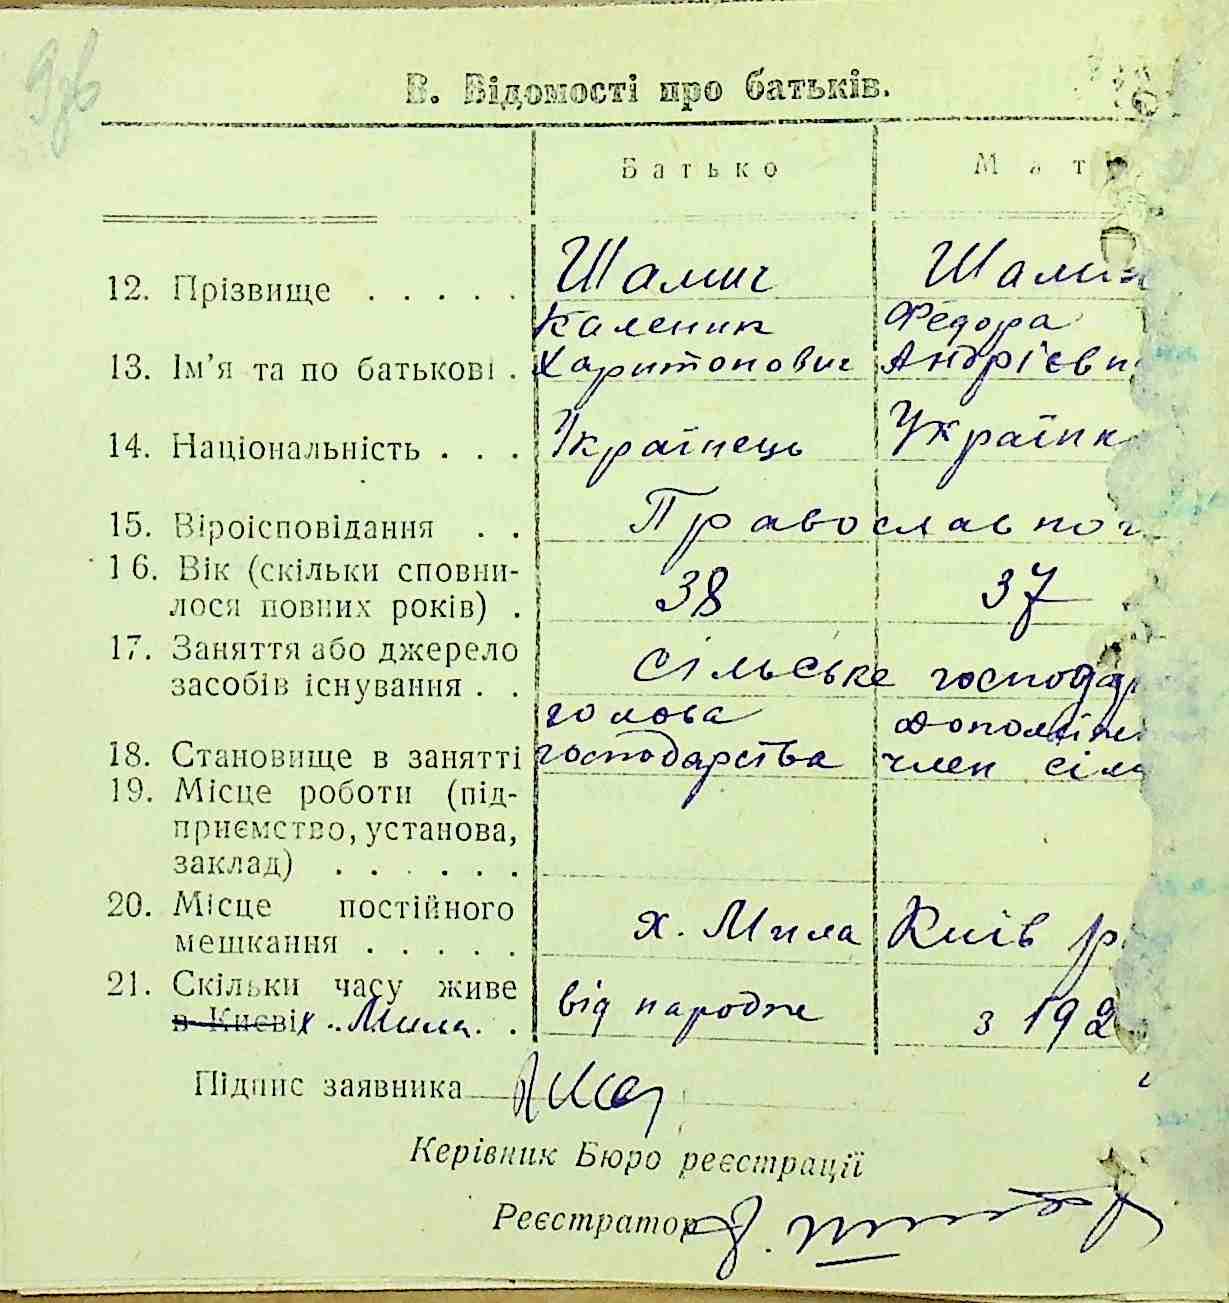 В. Відомості про батьків.
Батько Мат
12. Прізвище . . . . . Шамич Шами
Каленик Федора
13. Ім'я та по батькові . Харитонович Андрієвн
14. Національність . . . Українець Українк
15. Віроісповідання . . Православног
16. Вік (скільки сповни-
лося повних років) . 38 37
17. Заняття або джерело
засобів існування . . Сільське господар
голова допоміжн
18. Становище в занятті господарства член сіль
19. Місце роботи (під-
приємство, установа,
заклад) . . . . . .
20. Місце постійного
мешкання . . . . . х. Мила Київ р
21. Скільки часу живе
в Києві х. Мила . . від народже з 192
Підпис заявника
Керівник Бюро реєстрації
Реєстратор